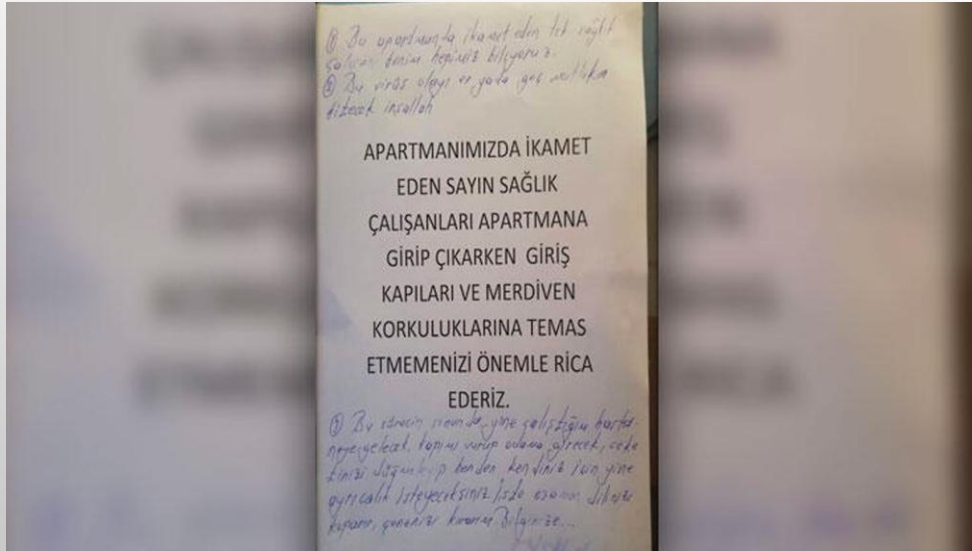 ① Bu apartmanda ikamet eden tek sağlık
çalışanı benim hepimiz biliyoruz.
② Bu virüs olayı er yada geç mutlaka
bitecek inşallah
APARTMANIMIZDA İKAMET
EDEN SAYIN SAĞLIK
ÇALIŞANLARI APARTMANA
GİRİP ÇIKARKEN GİRİŞ
KAPILARI VE MERDİVEN
KORKULUKLARINA TEMAS
ETMEMENİZİ ÖNEMLE RİCA
EDERİZ.
③ Bu sürecin sonunda, yine çalıştığım hasta-
neye gelecek, kapımı vurup odama girecek, ceke
tinizi düğmleyip benden kendiniz için yine
ayrıcalık isteyeceksiniz. İşte o zaman
çenenizi kırarım Bilginize...